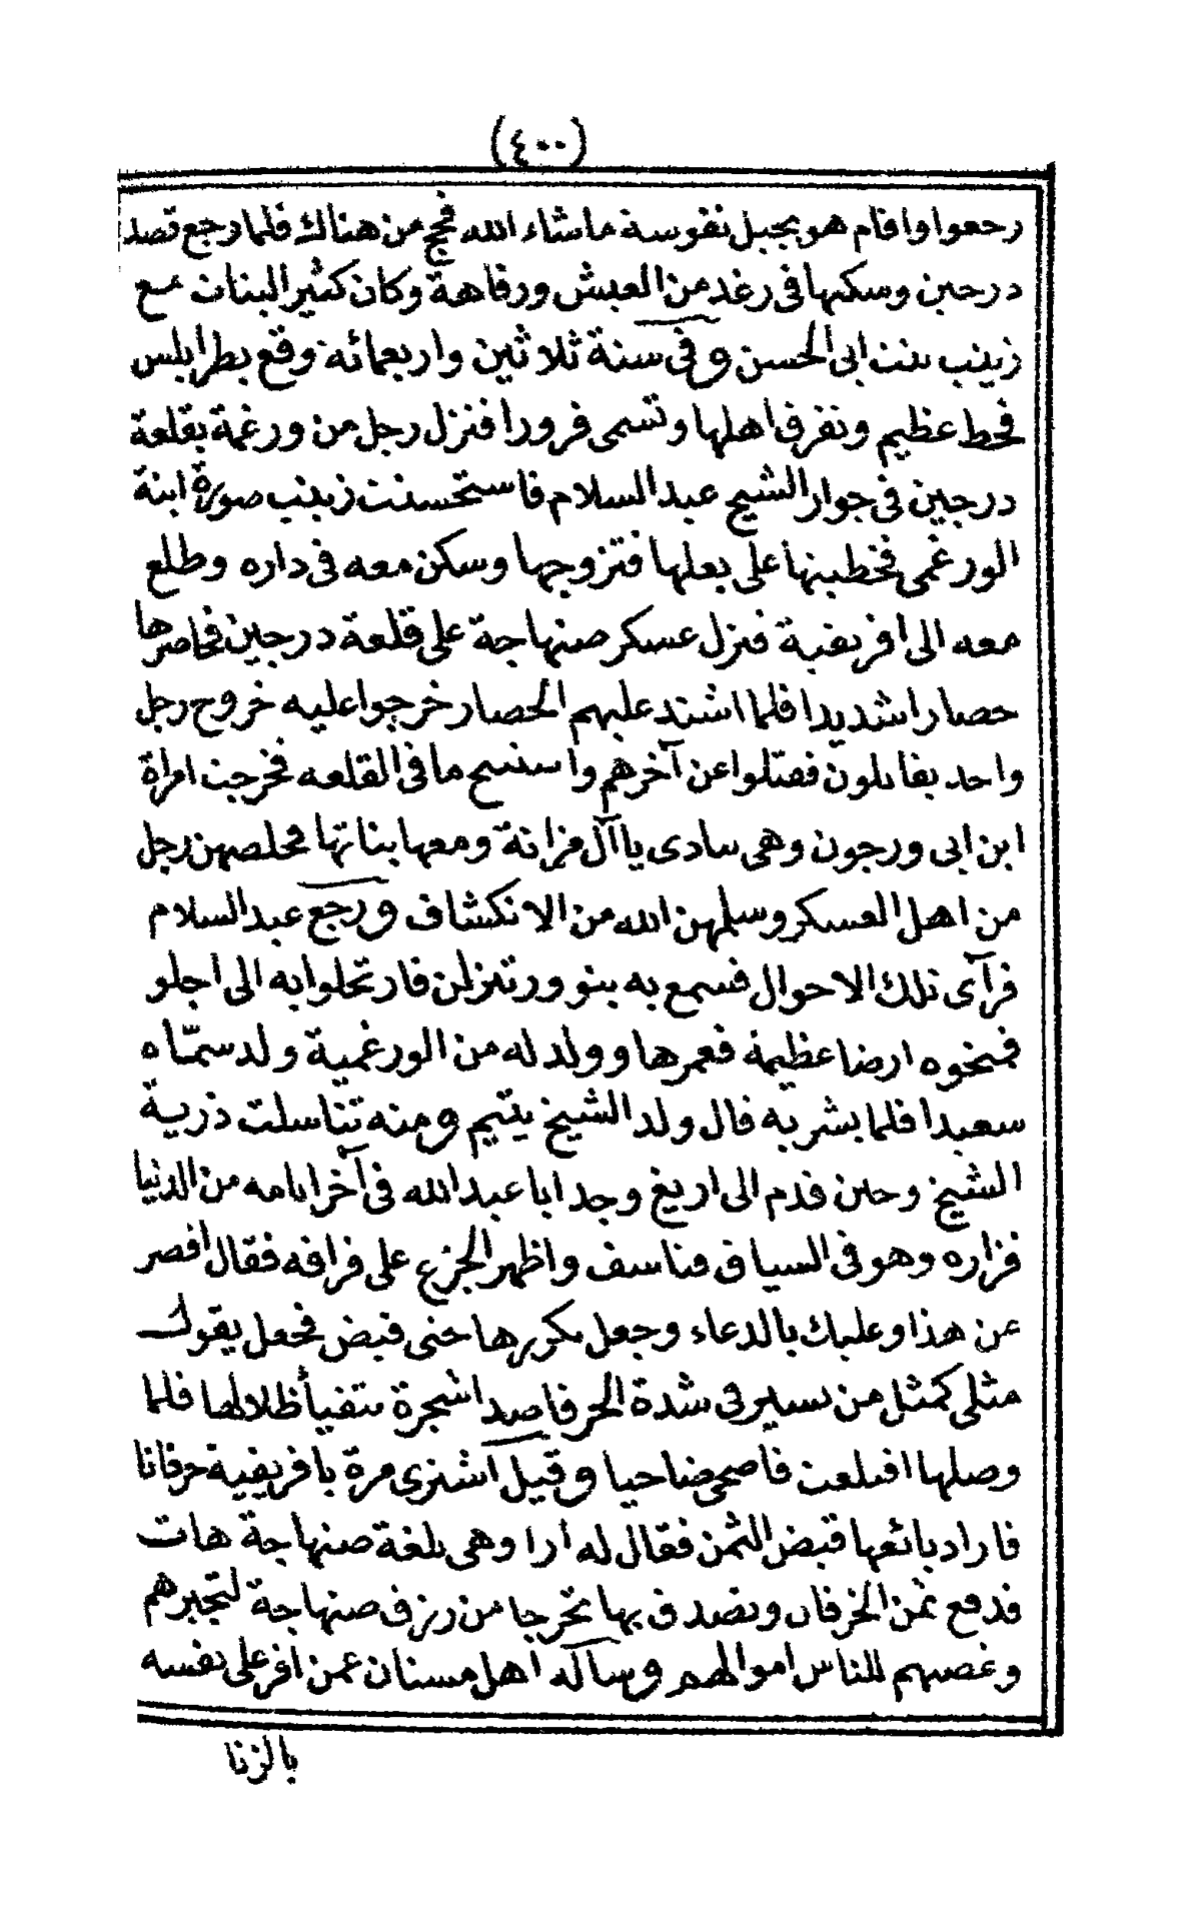 (٤٠٠)
رجعوا واقام هو بجبل نفوسة ماشاء الله فحج من هناك فلما رجع قصد
درجين وسكنها فى رغد من العيش ورفاهة وكان كثير البنات مع
زينب بنت ابى الحسن وفى سنة ثلاثين واربعمائة وقع بطرابلس
قحط عظيم وتفرق اهلها وتسمى فرورا فنزل رجل من ورغمة بقلعة
درجين فى جوار الشيخ عبد السلام فاستحسنت زينب صورة ابنة
الورغمى فخطبتها على بعلها فتزوجها وسكن معه فى داره وطلع
معه الى افريقية فنزل عسكر صنهاجة على قلعة درجين فحاصرها
حصارا شديدا فلما اشتد عليهم الحصار خرجوا عليه خروج رجل
واحد يقاتلون فقتلوا عن آخرهم واستبيح ما فى القلعه فخرجت امراة
ابن ابى ورجون وهى تنادى يا آل مزانة ومعها بناتها فخلصهن رجل
من اهل العسكر وسلمهن الله من الانكشاف ورجع عبد السلام
فرآى تلك الاحوال فسمع به بنو ورتنزلن فارتحلوا به الى اجلو
فمنحوه ارضا عظيمة فعمرها وولد له من الورغمية ولد سمّاه
سعيدا فلما بشر به قال ولد الشيخ يتيم ومنه تناسلت ذرية
الشيخ وحين قدم الى اريغ وجد ابا عبد الله فى آخر ايامه من الدنيا
فزاره وهو فى السياق فتاسف واظهر الجزع على فراقه فقال اقصر
عن هذا وعليك بالدعاء وجعل يكررها حتى قبض فجعل يقول
مثلى كمثل من يسير فى شدة الحر قاصدا شجرة يتفيأ ظلالها فلما
وصلها اقتلعت فاضحى ضاحيا وقيل اشترى مرة بافريقية خرفانا
فاراد بائعها قبض الثمن فقال له أرا وهى بلغة صنهاجة هات
فدفع ثمن الخرفان وتصدق بها تحرجا من رزق صنهاجة لتجبرهم
وغصبهم للناس اموالهم وساله اهل مسنان عمن اقر على نفسه
بالزنا